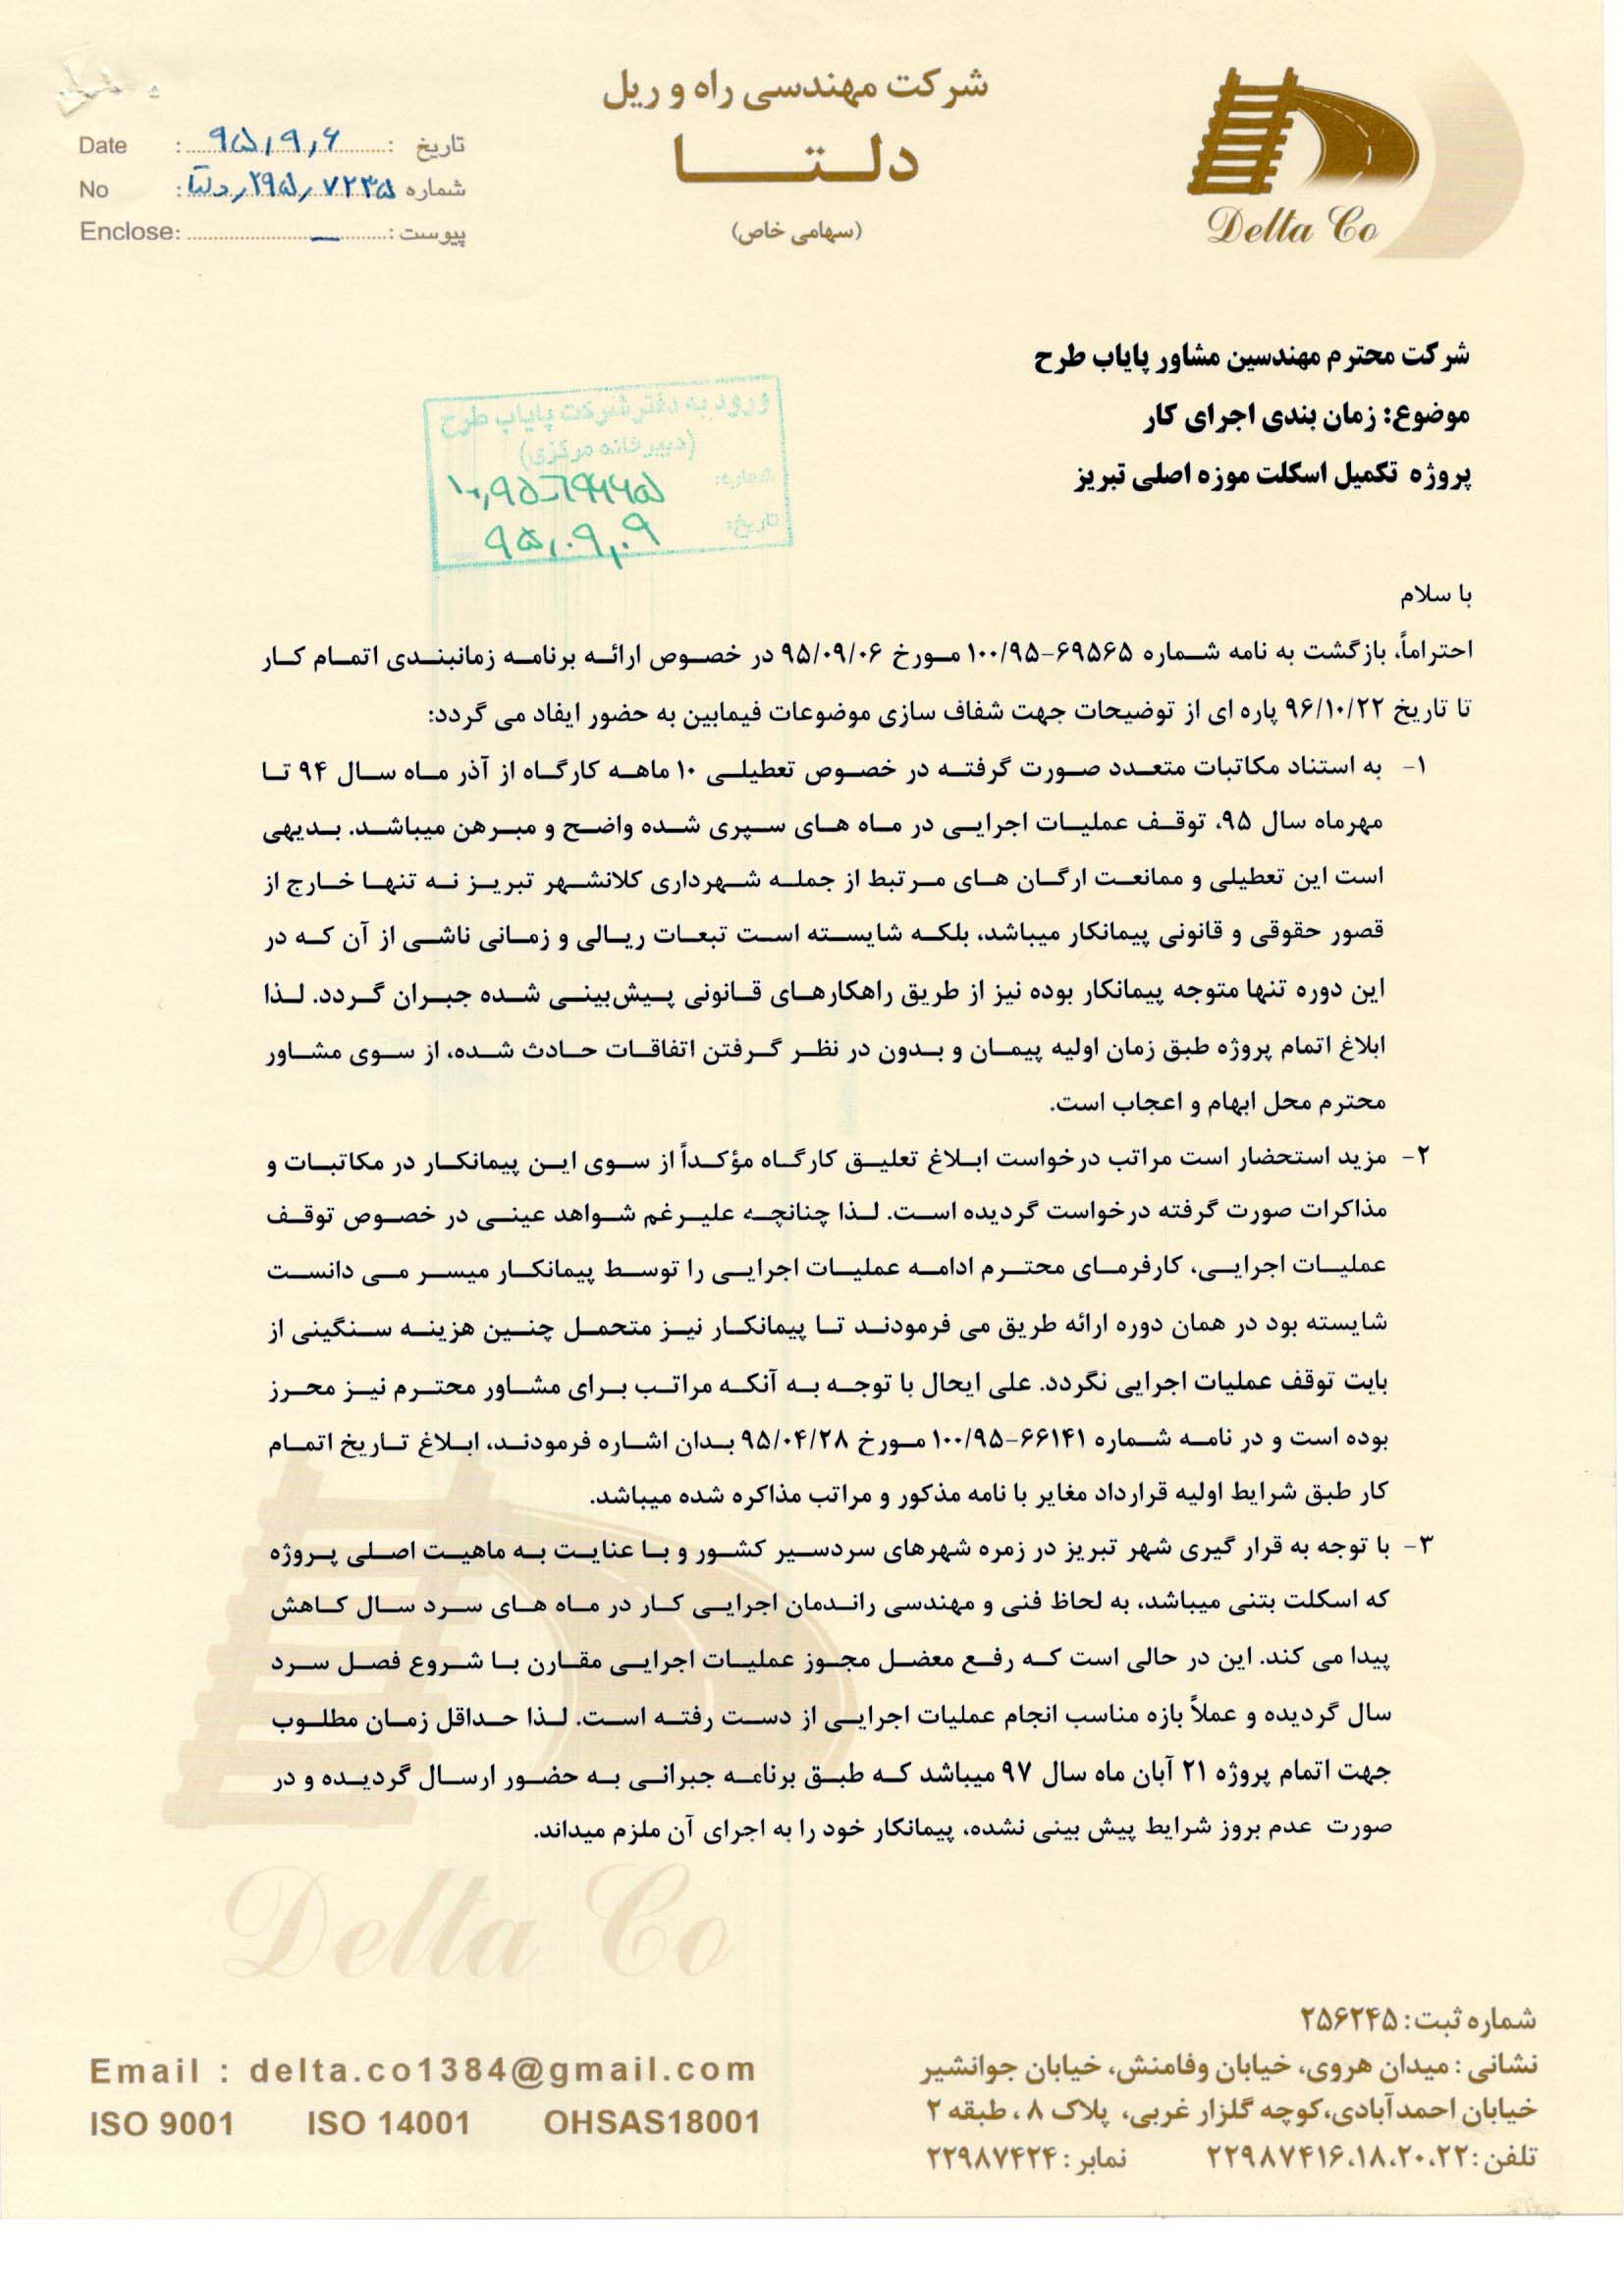 شرکت مهندسی راه و ریل
دلتا
(سهامی خاص)
Delta Co
Date : ۹۵/۹/۶ : تاریخ
No : دلتا/۲۹۵/۷۲۳۵ شماره
Enclose: — : پیوست
شرکت محترم مهندسین مشاور پایاب طرح
موضوع: زمان بندی اجرای کار
پروژه تکمیل اسکلت موزه اصلی تبریز
ورود به دفتر شرکت پایاب طرح
(دبیرخانه مرکزی)
شماره:
تاریخ: ۹۵/۰۹/۰۹
با سلام
احتراماً، بازگشت به نامه شماره ۶۹۵۶۵-۱۰۰/۹۵ مورخ ۹۵/۰۹/۰۶ در خصوص ارائه برنامه زمانبندی اتمام کار
تا تاریخ ۹۶/۱۰/۲۲ پاره ای از توضیحات جهت شفاف سازی موضوعات فیمابین به حضور ایفاد می گردد:
۱- به استناد مکاتبات متعدد صورت گرفته در خصوص تعطیلی ۱۰ ماهه کارگاه از آذر ماه سال ۹۴ تا
مهرماه سال ۹۵، توقف عملیات اجرایی در ماه های سپری شده واضح و مبرهن میباشد. بدیهی
است این تعطیلی و ممانعت ارگان های مرتبط از جمله شهرداری کلانشهر تبریز نه تنها خارج از
قصور حقوقی و قانونی پیمانکار میباشد، بلکه شایسته است تبعات ریالی و زمانی ناشی از آن که در
این دوره تنها متوجه پیمانکار بوده نیز از طریق راهکارهای قانونی پیش‌بینی شده جبران گردد. لذا
ابلاغ اتمام پروژه طبق زمان اولیه پیمان و بدون در نظر گرفتن اتفاقات حادث شده، از سوی مشاور
محترم محل ابهام و اعجاب است.
۲- مزید استحضار است مراتب درخواست ابلاغ تعلیق کارگاه مؤکداً از سوی این پیمانکار در مکاتبات و
مذاکرات صورت گرفته درخواست گردیده است. لذا چنانچه علیرغم شواهد عینی در خصوص توقف
عملیات اجرایی، کارفرمای محترم ادامه عملیات اجرایی را توسط پیمانکار میسر می دانست
شایسته بود در همان دوره ارائه طریق می فرمودند تا پیمانکار نیز متحمل چنین هزینه سنگینی از
بابت توقف عملیات اجرایی نگردد. علی ایحال با توجه به آنکه مراتب برای مشاور محترم نیز محرز
بوده است و در نامه شماره ۶۶۱۴۱-۱۰۰/۹۵ مورخ ۹۵/۰۴/۲۸ بدان اشاره فرمودند، ابلاغ تاریخ اتمام
کار طبق شرایط اولیه قرارداد مغایر با نامه مذکور و مراتب مذاکره شده میباشد.
۳- با توجه به قرار گیری شهر تبریز در زمره شهرهای سردسیر کشور و با عنایت به ماهیت اصلی پروژه
که اسکلت بتنی میباشد، به لحاظ فنی و مهندسی راندمان اجرایی کار در ماه های سرد سال کاهش
پیدا می کند. این در حالی است که رفع معضل مجوز عملیات اجرایی مقارن با شروع فصل سرد
سال گردیده و عملاً بازه مناسب انجام عملیات اجرایی از دست رفته است. لذا حداقل زمان مطلوب
جهت اتمام پروژه ۲۱ آبان ماه سال ۹۷ میباشد که طبق برنامه جبرانی به حضور ارسال گردیده و در
صورت عدم بروز شرایط پیش بینی نشده، پیمانکار خود را به اجرای آن ملزم میداند.
Delta Co
شماره ثبت: ۲۵۶۲۴۵
نشانی: میدان هروی، خیابان وفامنش، خیابان جوانشیر
خیابان احمدآبادی،کوچه گلزار غربی، پلاک ۸، طبقه ۲
تلفن: ۲۲۹۸۷۴۱۶،۱۸،۲۰،۲۲ نمابر: ۲۲۹۸۷۴۲۴
Email : delta.co1384@gmail.com
ISO 9001 ISO 14001 OHSAS18001